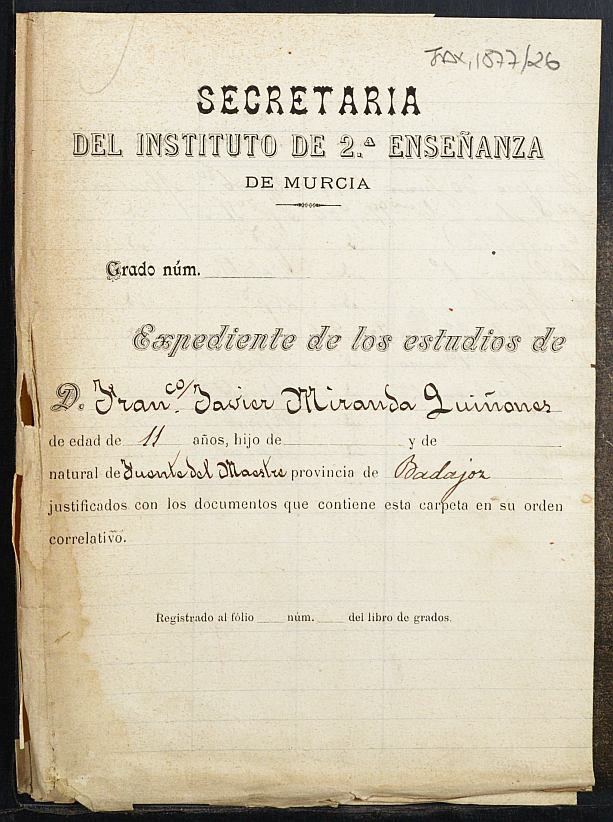 JAX, 1877/26
SECRETARIA
DEL INSTITUTO DE 2.ª ENSEÑANZA
DE MURCIA
Grado núm.
Expediente de los estudios de
D. Fran.co/ Javier Miranda Quiñones
de edad de 11 años, hijo de y de
natural de Fuente del Maestre provincia de Badajoz
justificados con los documentos que contiene esta carpeta en su orden
correlativo.
Registrado al fólio núm. del libro de grados.